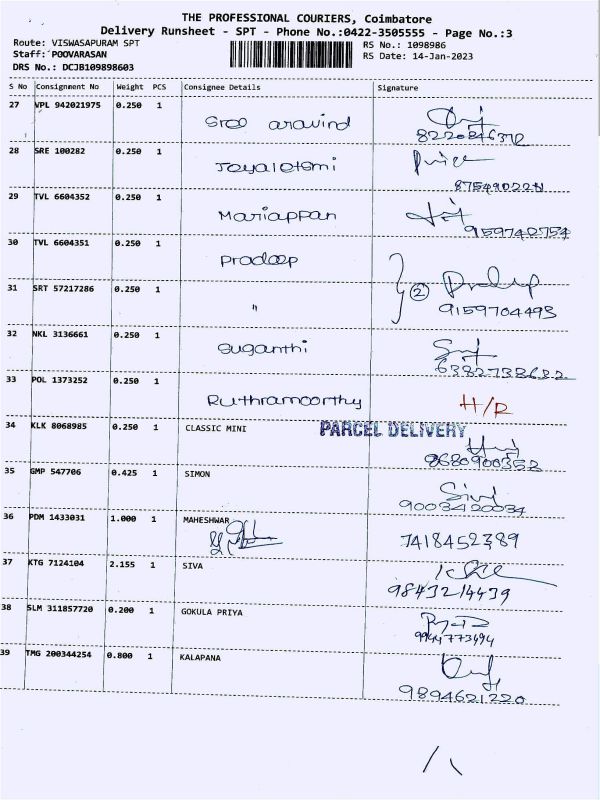 THE PROFESSIONAL COURIERS, Coimbatore
Delivery Runsheet - SPT - Phone No.:0422-3505555 - Page No.:3
Route: VISWASAPURAM SPT
RS No.: 1098986
Staff: POOVARASAN
RS Date: 14-Jan-2023
DRS No.: DCJB109898603
S No Consignment No Weight PCS Consignee Details Signature
27 VPL 942021975 0.250 1 Sree aravind
8220846372
28 SRE 100282 0.250 1
29 TVL 6604352 0.250 1 Mariappan
9159742754
30 TVL 6604351 0.250 1 Pradeep
31 SRT 57217286 0.250 1 " 2 Pradeep
9159704493
32 NKL 3136661 0.250 1 Suganthi
6382738632
33 POL 1373252 0.250 1 Ruthramoorthy H/R
34 KLK 8068985 0.250 1 CLASSIC MINI PARCEL DELIVERY
8680900352
35 GMP 547706 0.425 1 SIMON
9003420034
36 PDM 1433031 1.000 1 MAHESHWAR 7418452389
37 KTG 7124104 2.155 1 SIVA
9843214439
38 SLM 311857720 0.200 1 GOKULA PRIYA
9944773494
39 TMG 200344254 0.800 1 KALAPANA
9894621220